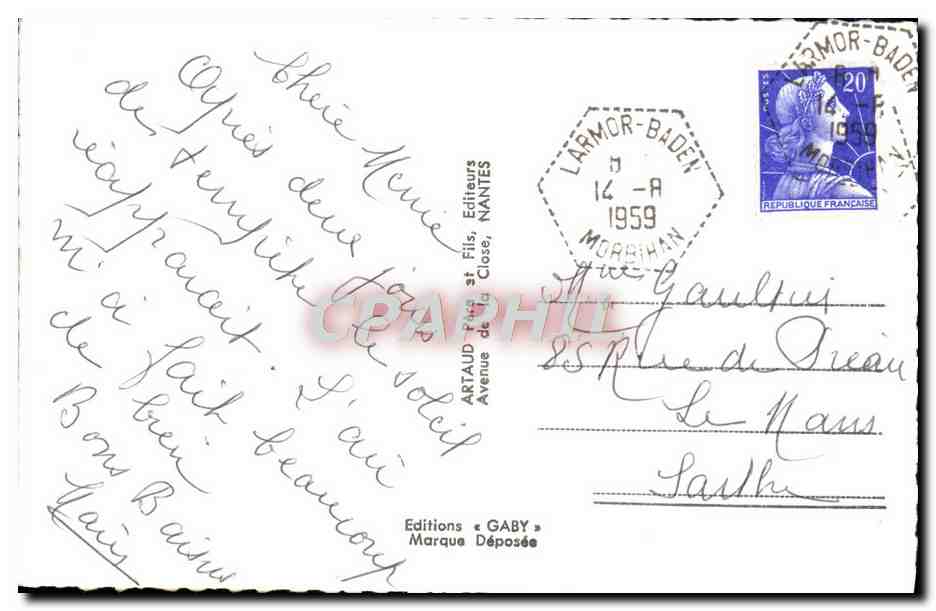 Chère Mamie
Après deux jours
de tempête le soleil
réapparait. L'air
m'a fait beaucoup
de bien
Bons Baisers
ARTAUD Père et Fils, Editeurs
Avenue de la Close, NANTES
Editions « GABY »
Marque Déposée
LARMOR-BADEN
14 -8
1959
MORBIHAN
LARMOR-BADEN
14 -8
1959
POSTES
20
REPUBLIQUE FRANÇAISE
Gaultier
85 Rue de
Le Mans
Sarthe
CPAPHIL